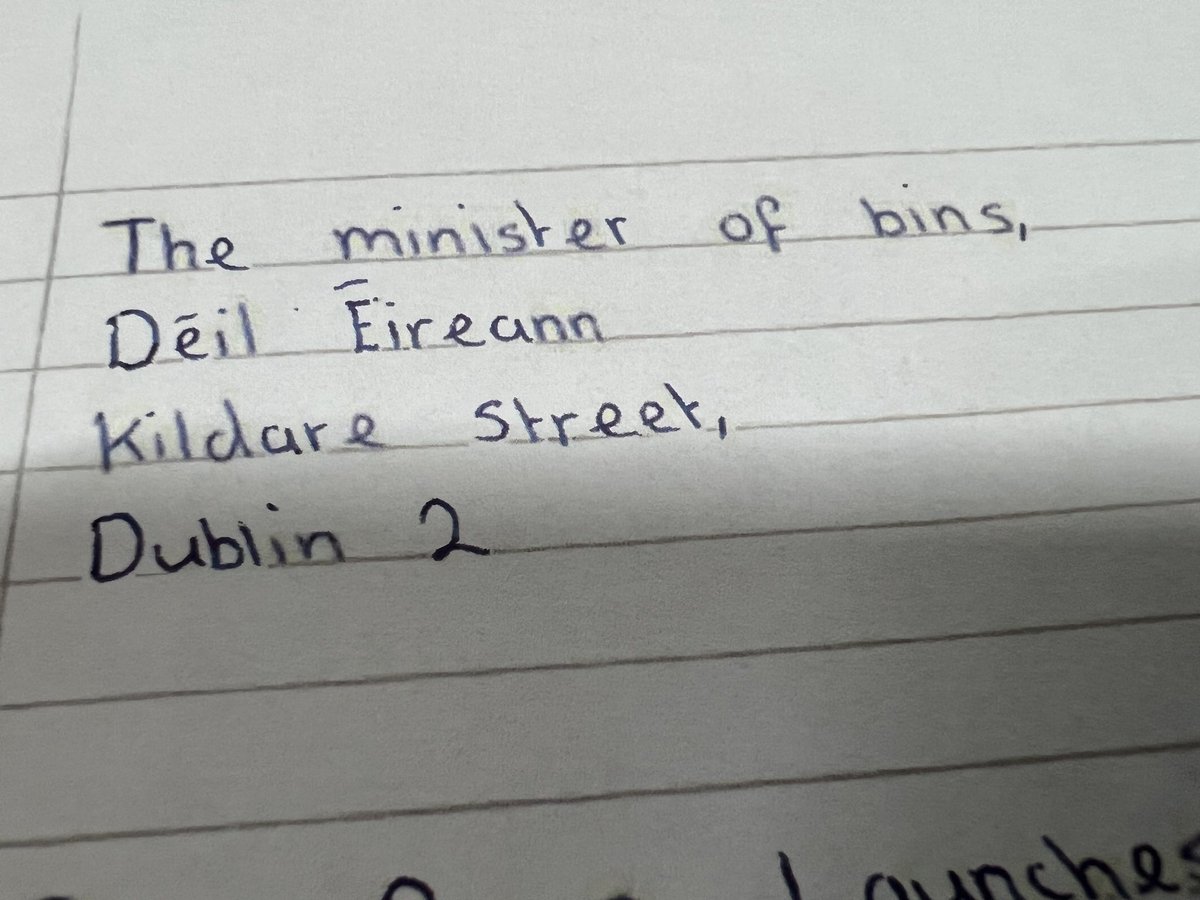 The minister of bins,
Dēil Ēireann
Kildare Street,
Dublin 2
Launches